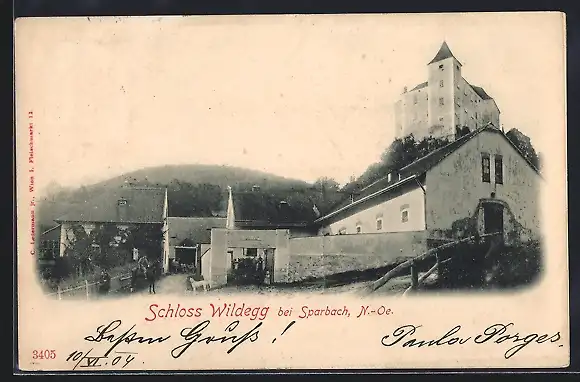 C. Ledermann jr., Wien I. Fleischmarkt 12.
Schloss Wildegg bei Sparbach, N.-Oe.
3405
Besten Gruß!
10/VI.04
Paula Porges.